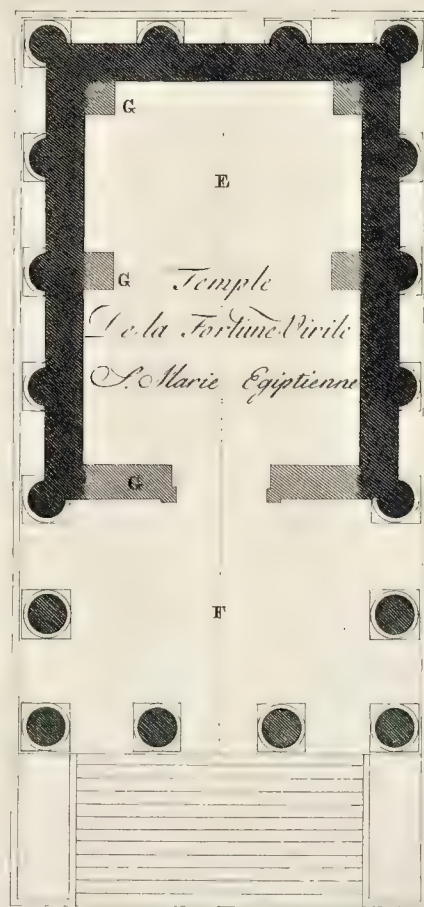 G
E
G Temple
De la Fortune Virile
S. Marie Egiptienne
G
F